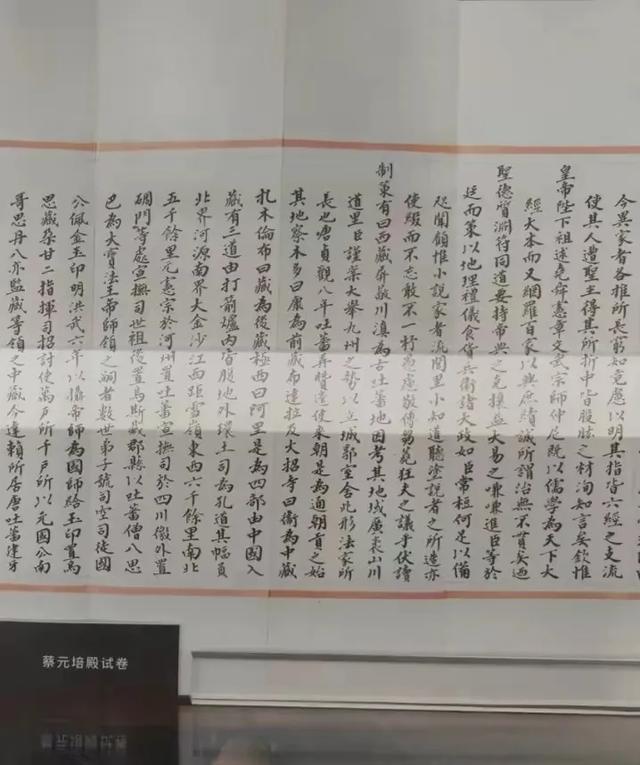 今異家者各推所長窮知究慮以明其指皆六經之支流
使其人遭聖主得其所折中皆股肱之材洵如言矣欽惟
皇帝陛下祖述堯舜憲章文武宗師仲尼既以儒學為天下大
經大本而又網羅百家以興庶績誠所謂治無不貫矣迺
聖德淵符同道要持帝典之克操大易之嗛嗛進臣等於
廷而策以地理禮儀食貨兵衛諸大政如臣常何足以備
咫聞顧惟小說家者流閭里小知道聽塗說者之所造亦
使綴而不忘敢不一抒愚慮敬傳芻蕘狂夫之議乎伏讀
制策有曰西藏屏蔽川滇為古吐蕃地因考其地域廣袤山川
道里臣謹案大舉九州之勢以立城郭室舍此形法家所
長也唐貞觀八年吐蕃弄贊遣使來朝是為通朝貢之始
其地察木多曰康為前藏布達拉及大招寺曰衛為中藏
扎木倫布曰藏為後藏極西曰阿里是為四部由中國入
藏有三道由打箭爐內皆腹地外環土司為孔道其幅員
北界河源南界大金沙江西距雪嶺東西六千餘里南北
五千餘里元憲宗於河州置吐蕃宣撫司於四川徼外置
碉門等處宣撫司世祖復置烏斯藏郡縣以吐蕃僧八思
巴為大寶法王帝師領之嗣者數世弟子號司空司徒國
公佩金玉印明洪武六年以攝帝師為國師給玉印置烏
思藏朵甘二指揮司招討使萬戶所千戶所以元國公南
哥思丹八亦監藏等領之中藏今達賴所居唐吐蕃建牙
蔡元培殿试卷